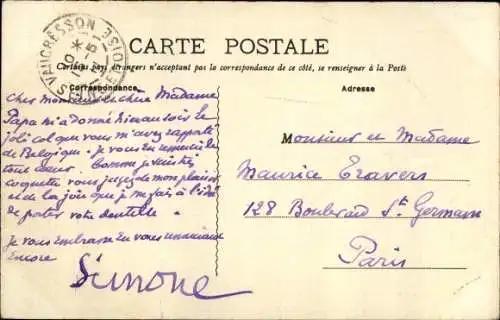 VAUCRESSON SEINE-ET-OISE
CARTE POSTALE
Certains pays étrangers n'acceptant pas la correspondance de ce côté, se renseigner à la Poste
Correspondance
Adresse
Cher Monsieur et chère Madame
Papa m'a donné hier au soir le
joli col que vous m'avez rapporté
de Belgique. Je vous en remercie de
tout cœur. Comme je suis très
coquette vous jugez de mon plaisir
et de la joie que je me fais à l'idée
de porter votre dentelle.
Je vous embrasse en vous remerciant
encore
Simone
Monsieur et Madame
Maurice Travers
128 Boulevard St Germain
Paris